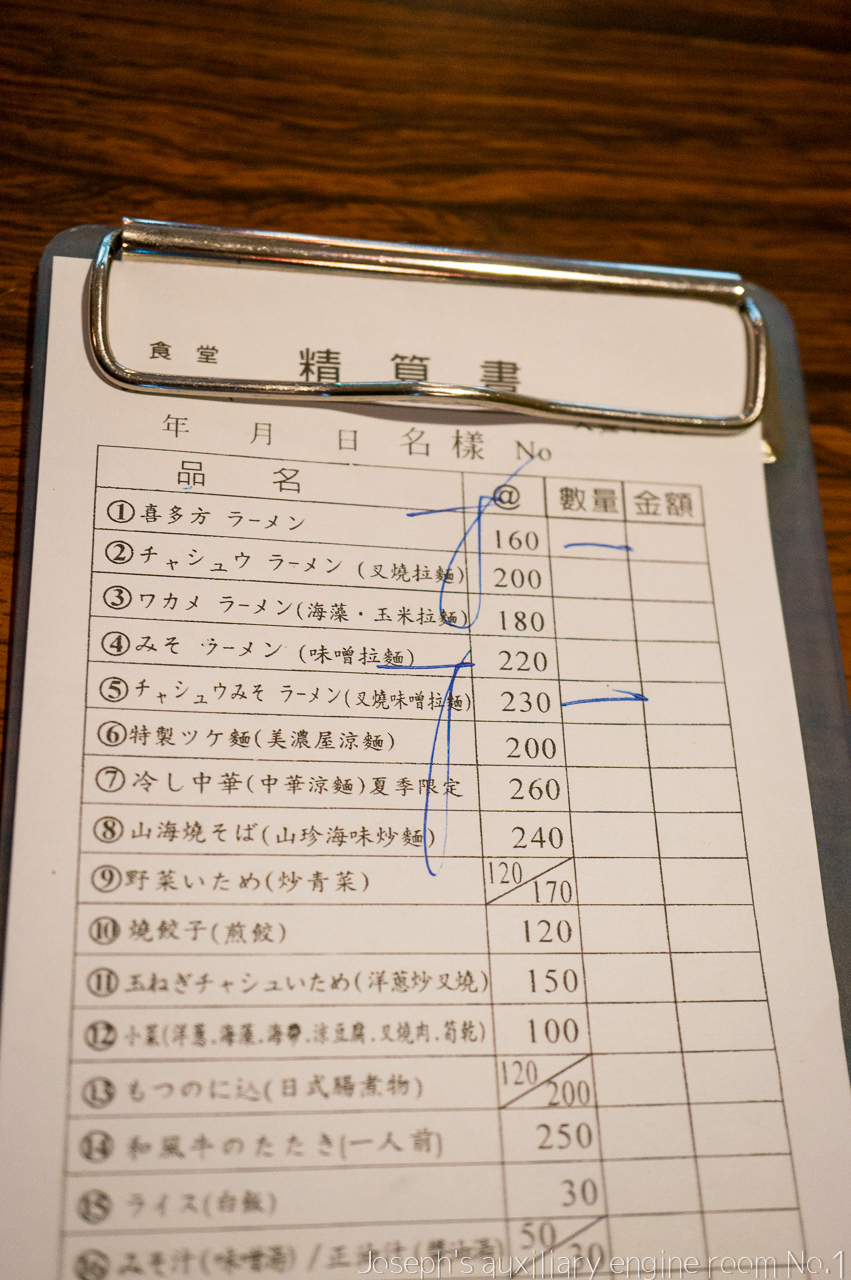 食堂 精算書
年 月 日 名 樣 No
品 名 @ 數量 金額
①喜多方 ラーメン 160 一
②チャシュウ ラーメン (叉燒拉麵) 200
③ワカメ ラーメン(海藻・玉米拉麵) 180
④みそ ラーメン (味噌拉麵) 220
⑤チャシュウみそ ラーメン(叉燒味噌拉麵) 230 一
⑥特製ツケ麵(美濃屋涼麵) 200
⑦冷し中華(中華涼麵)夏季限定 260
⑧山海燒そば(山珍海味炒麵) 240
⑨野菜いため(炒青菜) 120/170
⑩燒餃子(煎餃) 120
⑪玉ねぎチャシュいため(洋蔥炒叉燒) 150
⑫小菜(洋蔥.海藻.海帶.涼豆腐.叉燒肉.筍乾) 100
⑬もつのに込(日式腸煮物) 120/200
⑭和風牛のたたき(一人前) 250
⑮ライス(白飯) 30
⑯みそ汁(味噌湯)/正油汁(醬油湯) 50/30
Joseph's auxiliary engine room No.1